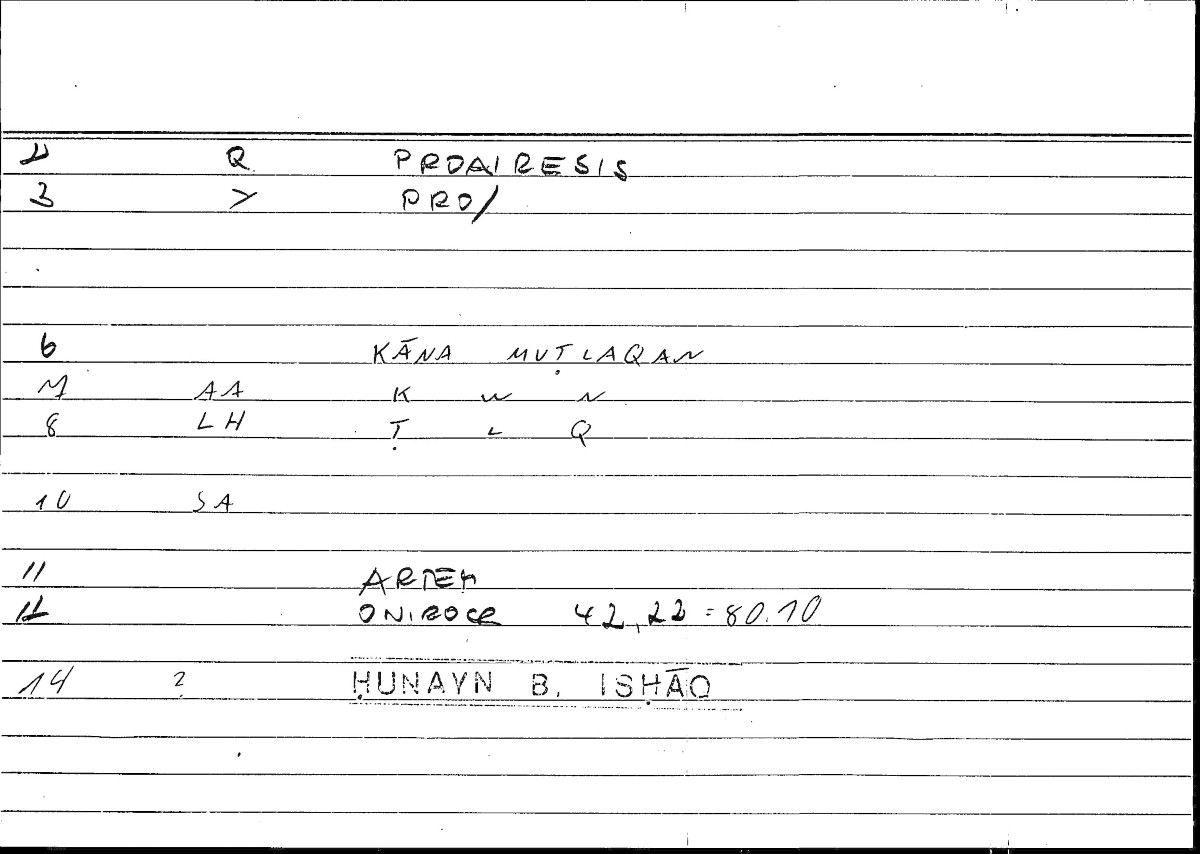 2 Q PROAIRESIS
3 > PRO/
6 KĀNA MUṬLAQAN
7 AA K W N
8 LH Ṭ L Q
10 SA
11 ARTEM
12 ONIROCR 42,22 = 80.10
14 ? ḤUNAYN B. ISḤĀQ